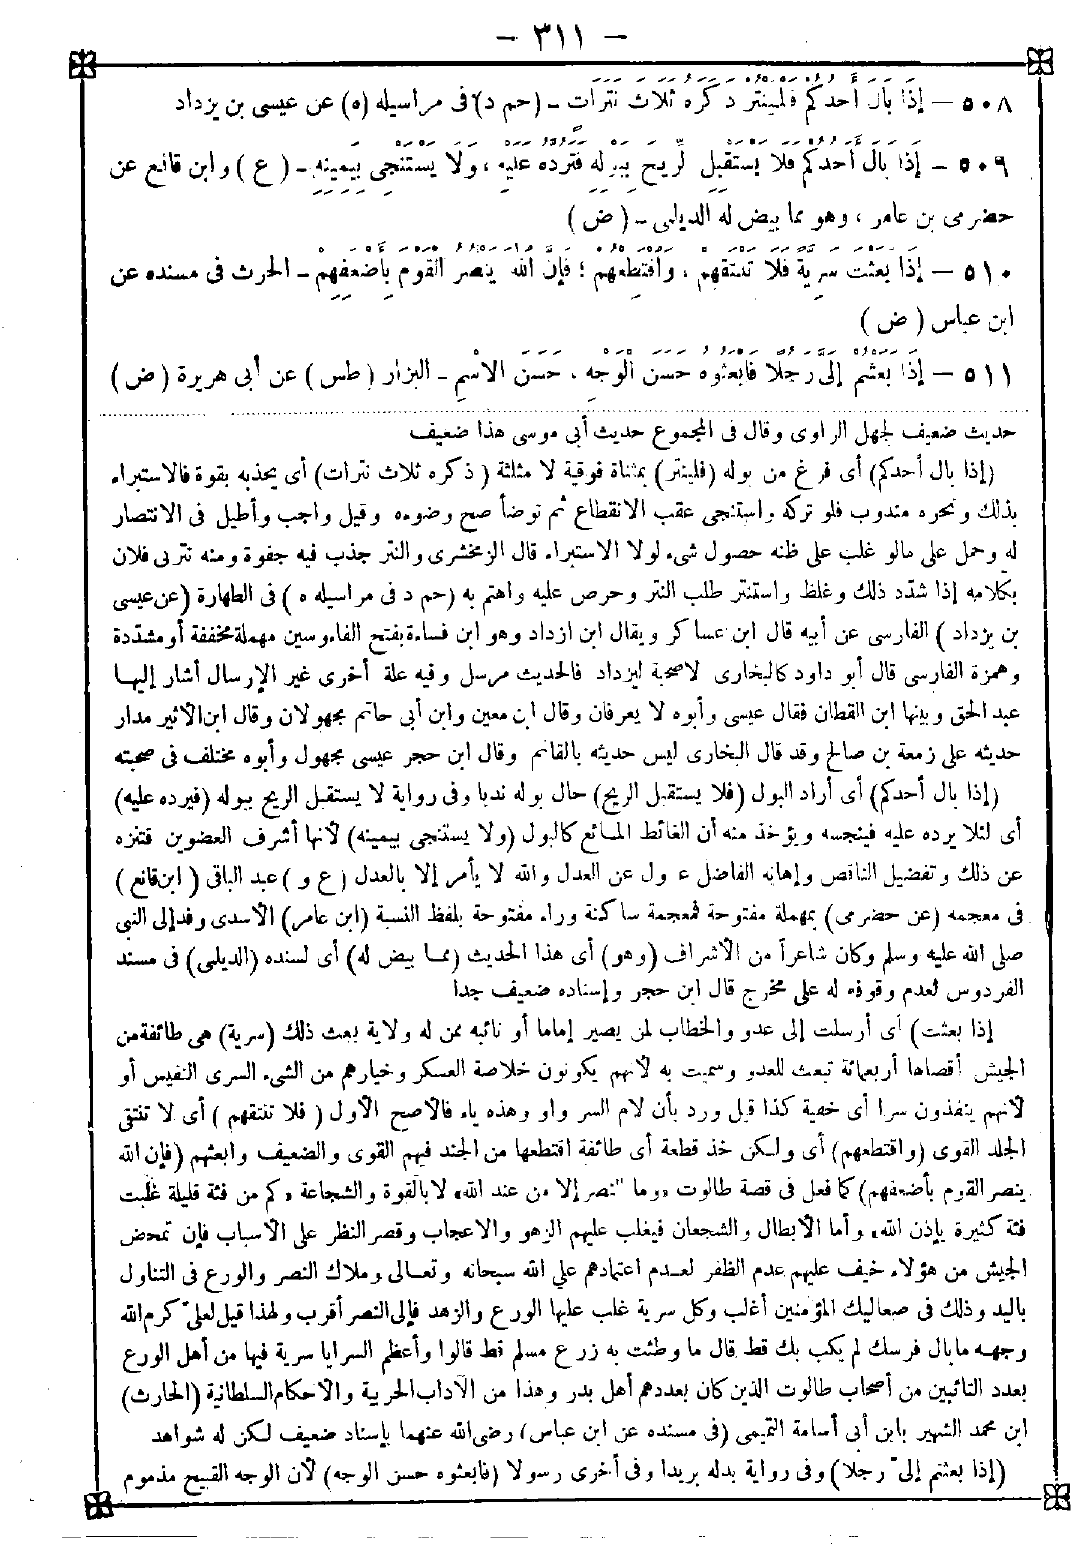 - ٣١١ -
٥٠٨ - إِذَا بَالَ أَحَدُكُمْ فَلْيَنْتُرْ ذَكَرَهُ ثَلَاثَ نَتَرَاتٍ - (حم د) فى مراسيله (ه) عن عيسى بن يزداد
٥٠٩ - إِذَا بَالَ أَحَدُكُمْ فَلَا يَسْتَقْبِلِ الرِّيحَ بِبَوْلِهِ فَتَرُدَّهُ عَلَيْهِ، وَلَا يَسْتَنْجِى بِيَمِينِهِ - ( ع ) وابن قانع عن
حضرمى بن عامر ، وهو مما بيض له الديلمى - ( ض )
٥١٠ - إِذَا بَعَثْتَ سَرِيَّةً فَلَا تَنْتَقِهِمْ ، وَاقْتَطِعْهُمْ ؛ فَإِنَّ اللهَ يَنْصُرُ الْقَوْمَ بِأَضْعَفِهِمْ - الحرث فى مسنده عن
ابن عباس ( ض )
٥١١ - إِذَا بَعَثْتُمْ إِلَىَّ رَجُلًا فَابْعَثُوهُ حَسَنَ الْوَجْهِ ، حَسَنَ الِاسْمِ - البزار (طس) عن أبى هريرة (ض)
حديث ضعيف لجهل الراوى وقال فى المجموع حديث أبى موسى هذا ضعيف
(إذا بال أحدكم) أى فرغ من بوله (فلينتر) بمثناة فوقية لا مثلثة (ذكره ثلاث نترات) أى يجذبه بقوة فالاستبراء
بذلك ونحوه مندوب فلو تركه واستنجى عقب الانقطاع ثم توضأ صح وضوءه وقيل واجب وأطيل فى الانتصار
له وحمل على مالو غلب على ظنه حصول شىء لولا الاستبراء قال الزمخشرى والنتر جذب فيه جفوة ومنه نترنى فلان
بكلامه إذا شدّد ذلك وغلظ واستنتر طلب النتر وحرص عليه واهتم به (حم د فى مراسيله ه ) فى الطهارة (عن عيسى
بن يزداد ) الفارسى عن أبيه قال ابن عساكر ويقال ابن ازداد وهو ابن فساءة بفتح الفاء وسين مهملة مخففة أو مشدّدة
وهمزة الفارسى قال أبو داود كالبخارى لاصحبة ليزداد فالحديث مرسل وفيه علة أخرى غير الإرسال أشار إليها
عبد الحق وبينها ابن القطان فقال عيسى وأبوه لا يعرفان وقال ابن معين وابن أبى حاتم مجهولان وقال ابن الأثير مدار
حديثه على زمعة بن صالح وقد قال البخارى ليس حديثه بالقائم وقال ابن حجر عيسى مجهول وأبوه مختلف فى صحبته
(إذا بال أحدكم) أى أراد البول (فلا يستقبل الريح) حال بوله ندبا وفى رواية لا يستقبل الريح ببوله (فيرده عليه)
أى لئلا يرده عليه فينجسه ويؤخذ منه أن الغائط المائع كالبول (ولا يستنجى بيمينه) لأنها أشرف العضوين فتنزه
عن ذلك وتفضيل الناقص وإهانة الفاضل عدول عن العدل والله لا يأمر إلا بالعدل ( ع و ) عبد الباقى ( ابن قانع )
فى معجمه (عن حضرمى) بمهملة مفتوحة فمعجمة ساكنة وراء مفتوحة بلفظ النسبة (ابن عامر) الأسدى وفد إلى النبى
صلى الله عليه وسلم وكان شاعراً من الأشراف (وهو) أى هذا الحديث (مما بيض له) أى لسنده (الديلمى) فى مسند
الفردوس لعدم وقوفه له على مخرج قال ابن حجر وإسناده ضعيف جدا
إذا بعثت) أى أرسلت إلى عدو والخطاب لمن يصير إماما أو نائبه ممن له ولاية بعث ذلك (سرية) هى طائفة من
الجيش أقصاها أربعمائة تبعث للعدو وسميت به لأنهم يكونون خلاصة العسكر وخيارهم من الشىء السرى النفيس أو
لأنهم ينفذون سرا أى خفية كذا قيل ورد بأن لام السر واو وهذه ياء فالأصح الأول ( فلا تنتقهم ) أى لا تنتقى
الجلد القوى (واقتطعهم) أى ولكن خذ قطعة أى طائفة اقتطعها من الجند فيهم القوى والضعيف وابعثهم (فإن الله
ينصر القوم بأضعفهم) كما فعل فى قصة طالوت «وما النصر إلا من عند الله» لا بالقوة والشجاعة «كم من فئة قليلة غلبت
فئة كثيرة بإذن الله» وأما الأبطال والشجعان فيغلب عليهم الزهو والاعجاب وقصر النظر على الأسباب فإن تمحض
الجيش من هؤلاء خيف عليهم عدم الظفر لعدم اعتمادهم على الله سبحانه وتعالى وملاك النصر والورع فى التناول
باليد وذلك فى صعاليك المؤمنين أغلب وكل سرية غلب عليها الورع والزهد فإلى النصر أقرب ولهذا قيل لعلىّ كرم الله
وجهه مابال فرسك لم يكب بك قط قال ما وطئت به زرع مسلم قط قالوا وأعظم السرايا سرية فيها من أهل الورع
بعدد الثابتين من أصحاب طالوت الذين كان بعددهم أهل بدر وهذا من الآداب الحربية والأحكام السلطانية (الحارث)
ابن محمد الشهير بابن أبى أسامة التميمى (فى مسنده عن ابن عباس) رضى الله عنهما بإسناد ضعيف لكن له شواهد
(إذا بعثتم إلىّ رجلا) وفى رواية بدله بريدا وفى أخرى رسولا (فابعثوه حسن الوجه) لأن الوجه القبيح مذموم